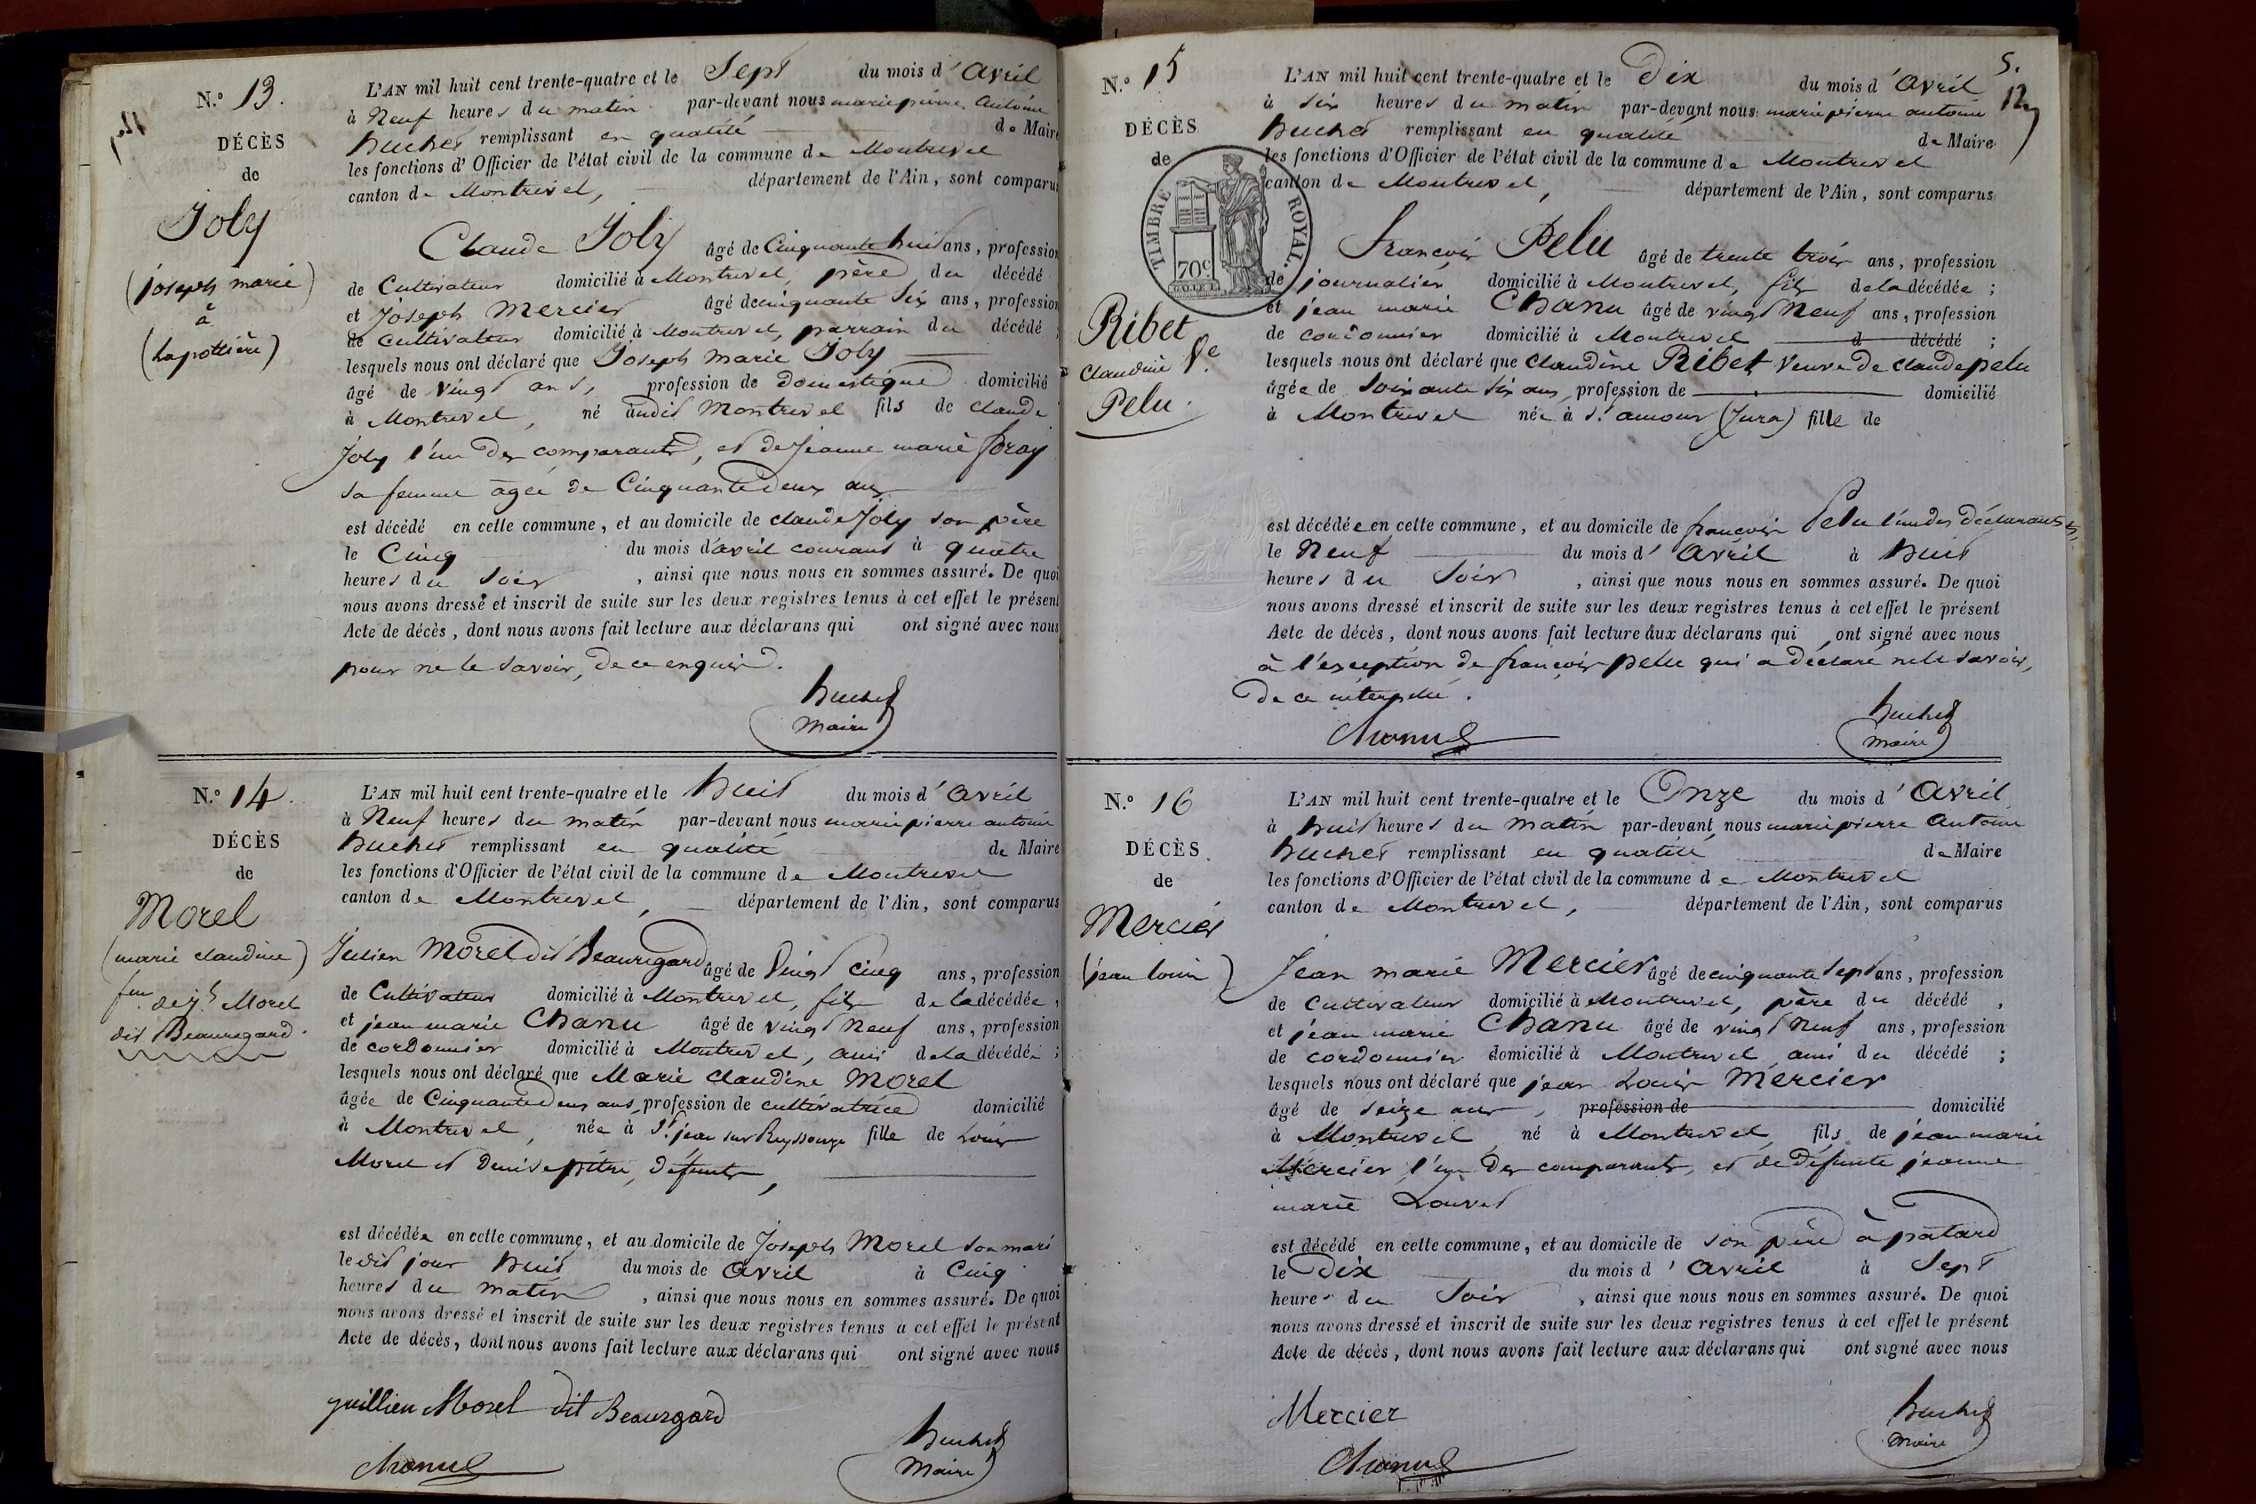 N.º 13.
DÉCÈS
de
Joly
(joseph marie)
à
(Lapottière)
L'AN mil huit cent trente-quatre et le Sept du mois d'avril
à Neuf heures du matin par-devant nous marie pierre Antoine
huchet remplissant en qualité de Maire
les fonctions d'Officier de l'état civil de la commune de Montrevel
canton de Montrevel, département de l'Ain, sont comparus
Claude Joly âgé de Cinquante huit ans, profession
de Cultivateur domicilié à Montrevel, père du décédé
et Joseph Mercier âgé de cinquante Six ans, profession
de cultivateur domicilié à Montrevel, parrain du décédé ;
lesquels nous ont déclaré que Joseph Marie Joly
âgé de vingt ans, profession de domestique domicilié
à Montrevel, né audit Montrevel fils de claude
Joly l'un des comparants, et de Jeanne marie foray
sa femme âgée de Cinquante deux ans
est décédé en cette commune, et au domicile de claude Joly son père
le Cinq du mois d'avril courant à quatre
heures du soir, ainsi que nous nous en sommes assuré. De quoi
nous avons dressé et inscrit de suite sur les deux registres tenus à cet effet le présent
Acte de décès, dont nous avons fait lecture aux déclarans qui ont signé avec nous
pour ne le savoir, de ce enquis.
huchet
Maire
N.º 14.
DÉCÈS
de
Morel
(marie claudine)
fme de jh Morel
dit Beauregard.
L'AN mil huit cent trente-quatre et le huit du mois d'avril
à Neuf heures du matin par-devant nous marie pierre antoine
huchet remplissant en qualité de Maire
les fonctions d'Officier de l'état civil de la commune de Montrevel
canton de Montrevel, département de l'Ain, sont comparus
Julien Morel dit Beauregard âgé de Vingt cinq ans, profession
de Cultivateur domicilié à Montrevel, fils de la décédée,
et jean marie Chanu âgé de vingt neuf ans, profession
de cordonnier domicilié à Montrevel, ami de la décédée ;
lesquels nous ont déclaré que Marie Claudine Morel
âgée de Cinquante deux ans, profession de cultivatrice domicilié
à Montrevel, née à St. jean sur Reyssouze fille de Louis
Morel et denise pitre, défunts,
est décédée en cette commune, et au domicile de Joseph Morel son mari
le dit jour huit du mois de avril à Cinq
heures du matin, ainsi que nous nous en sommes assuré. De quoi
nous avons dressé et inscrit de suite sur les deux registres tenus a cet effet le présent
Acte de décès, dont nous avons fait lecture aux déclarans qui ont signé avec nous
juillien Morel dit Beauregard
huchet
Chanu
Maire
5.
12
N.º 15
DÉCÈS
de
TIMBRE ROYAL.
70c
Ribet
claudine Ve
Pelu.
L'AN mil huit cent trente-quatre et le Dix du mois d'avril
à six heures du matin par-devant nous marie pierre antoine
huchet remplissant en qualité de Maire
les fonctions d'Officier de l'état civil de la commune de Montrevel
canton de Montrevel, département de l'Ain, sont comparus
françois Pelu âgé de trente trois ans, profession
de journalier domicilié à Montrevel, fils de la décédée ;
et jean marie Chanu âgé de vingt Neuf ans, profession
de cordonnier domicilié à Montrevel d décédé ;
lesquels nous ont déclaré que claudine Ribet veuve de claude pelu
âgée de soixante six ans, profession de domicilié
à Montrevel née à St. amour (Jura) fille de
est décédée en cette commune, et au domicile de françois Pelu l'un des déclarants,
le Neuf du mois d'avril à huit
heures du soir, ainsi que nous nous en sommes assuré. De quoi
nous avons dressé et inscrit de suite sur les deux registres tenus à cet effet le présent
Acte de décès, dont nous avons fait lecture aux déclarans qui ont signé avec nous
à l'exception de françois pelu qui a déclaré ne le savoir,
de ce interpellé.
huchet
Chanu
maire
N.º 16
DÉCÈS
de
Mercier
(jean louis)
L'AN mil huit cent trente-quatre et le Onze du mois d'avril
à huit heures du matin par-devant nous marie pierre Antoine
huchet remplissant en qualité de Maire
les fonctions d'Officier de l'état civil de la commune de Montrevel
canton de Montrevel, département de l'Ain, sont comparus
Jean marie Mercier âgé de cinquante sept ans, profession
de cultivateur domicilié à Montrevel, père du décédé,
et jean marie Chanu âgé de vingt neuf ans, profession
de cordonnier domicilié à Montrevel ami du décédé ;
lesquels nous ont déclaré que jean Louis Mercier
âgé de seize ans, profession de domicilié
à Montrevel né à Montrevel, fils de jean marie
Mercier l'un des comparants, et de défunte jeanne
marie Louvet
est décédé en cette commune, et au domicile de son père à patard
le Dix du mois d'avril à Sept
heures du soir, ainsi que nous nous en sommes assuré. De quoi
nous avons dressé et inscrit de suite sur les deux registres tenus à cet effet le présent
Acte de décès, dont nous avons fait lecture aux déclarans qui ont signé avec nous
Mercier
huchet
maire
Chanu